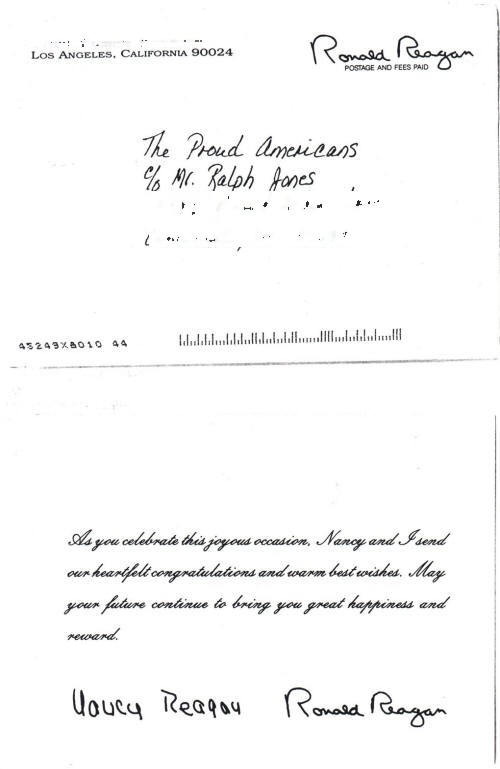 Los Angeles, California 90024
Ronald Reagan
POSTAGE AND FEES PAID
The Proud Americans
c/o Mr. Ralph Jones
45249X8010 44
As you celebrate this joyous occasion, Nancy and I send
our heartfelt congratulations and warm best wishes. May
your future continue to bring you great happiness and
reward.
Nancy Reagan Ronald Reagan